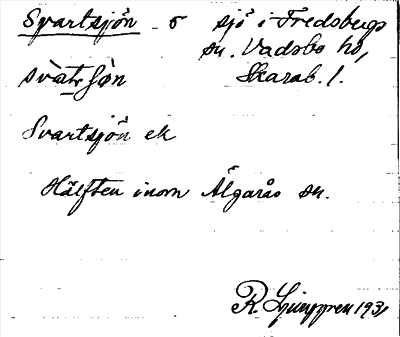 Svartsjön sjö i Fredsbergs
sn. Vadsbo hd,
Skarab. l.
Svartsjön ek
Hälften inom Älgarås sn.
R. Ljunggren 1931